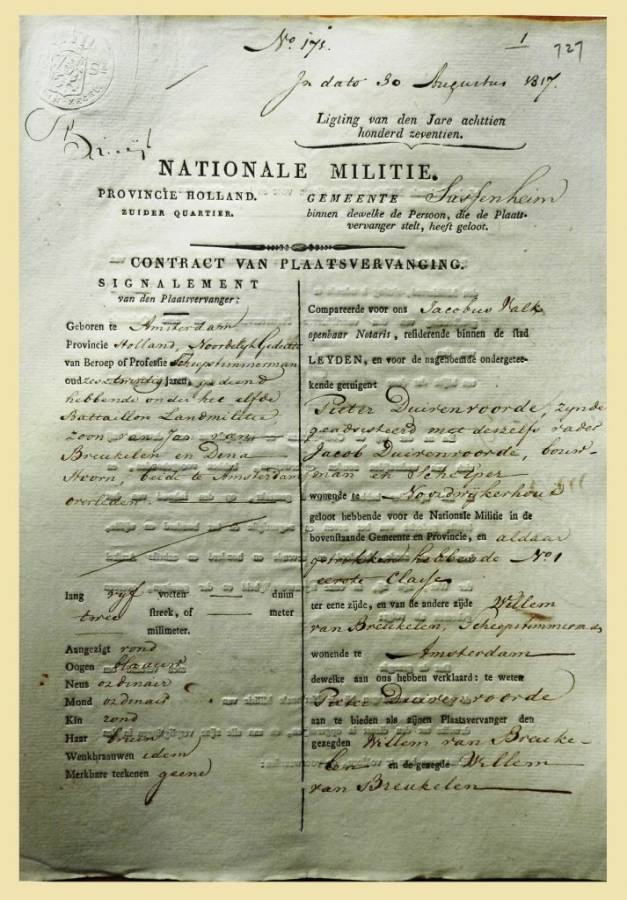 No. 171.
1
727
In dato 30 Augustus 1817.
Ligting van den Jare achttien
honderd zeventien.
NATIONALE MILITIE.
PROVINCIE HOLLAND.
ZUIDER QUARTIER.
GEMEENTE Sassenheim
binnen dewelke de Persoon, die de Plaats-
vervanger stelt, heeft geloot.
CONTRACT VAN PLAATSVERVANGING.
SIGNALEMENT
van den Plaatsvervanger:
Geboren te Amsterdam
Provincie Holland, Noordelijk Gedeelte
van Beroep of Professie Scheepstimmerman
oud zesentwintig jaren, gediend
hebbende onder het elfde
Battaillon Landmilitie,
zoon van Jan van
Breukelen en Dena
Hoorn, beide te Amsterdam
overleden.
lang vyf voeten duim
twee streek, of meter
milimeter.
Aangezigt rond
Oogen blauw
Neus ordinair
Mond ordinair
Kin rond
Haar bruin
Wenkbraauwen idem
Merkbare teekenen geene
Compareerde voor ons Jacobus Valk
openbaar Notaris, resideerende binnen de stad
LEYDEN, en voor de nagenoemde ondergetee-
kende getuigen
Pieter Duirenvoorde, zynde
geadsisteerd met deszelfs vader
Jacob Duirenvoorde, bouw-
man en Schelper
wonende te Noordwijkerhout
geloot hebbende voor de Nationale Militie in de
bovenstaande Gemeente en Provincie, en aldaar
getrokken hebbende No 1
eerste Classe
ter eene zijde, en van de andere zijde Willem
van Breukelen, Scheepstimmerman
wonende te Amsterdam
dewelke aan ons hebben verklaard: te weten
Pieter Duirenvoorde
aan te bieden als zijnen Plaatsvervanger den
gezegden Willem van Breuke-
len en de gezegde Willem
van Breukelen